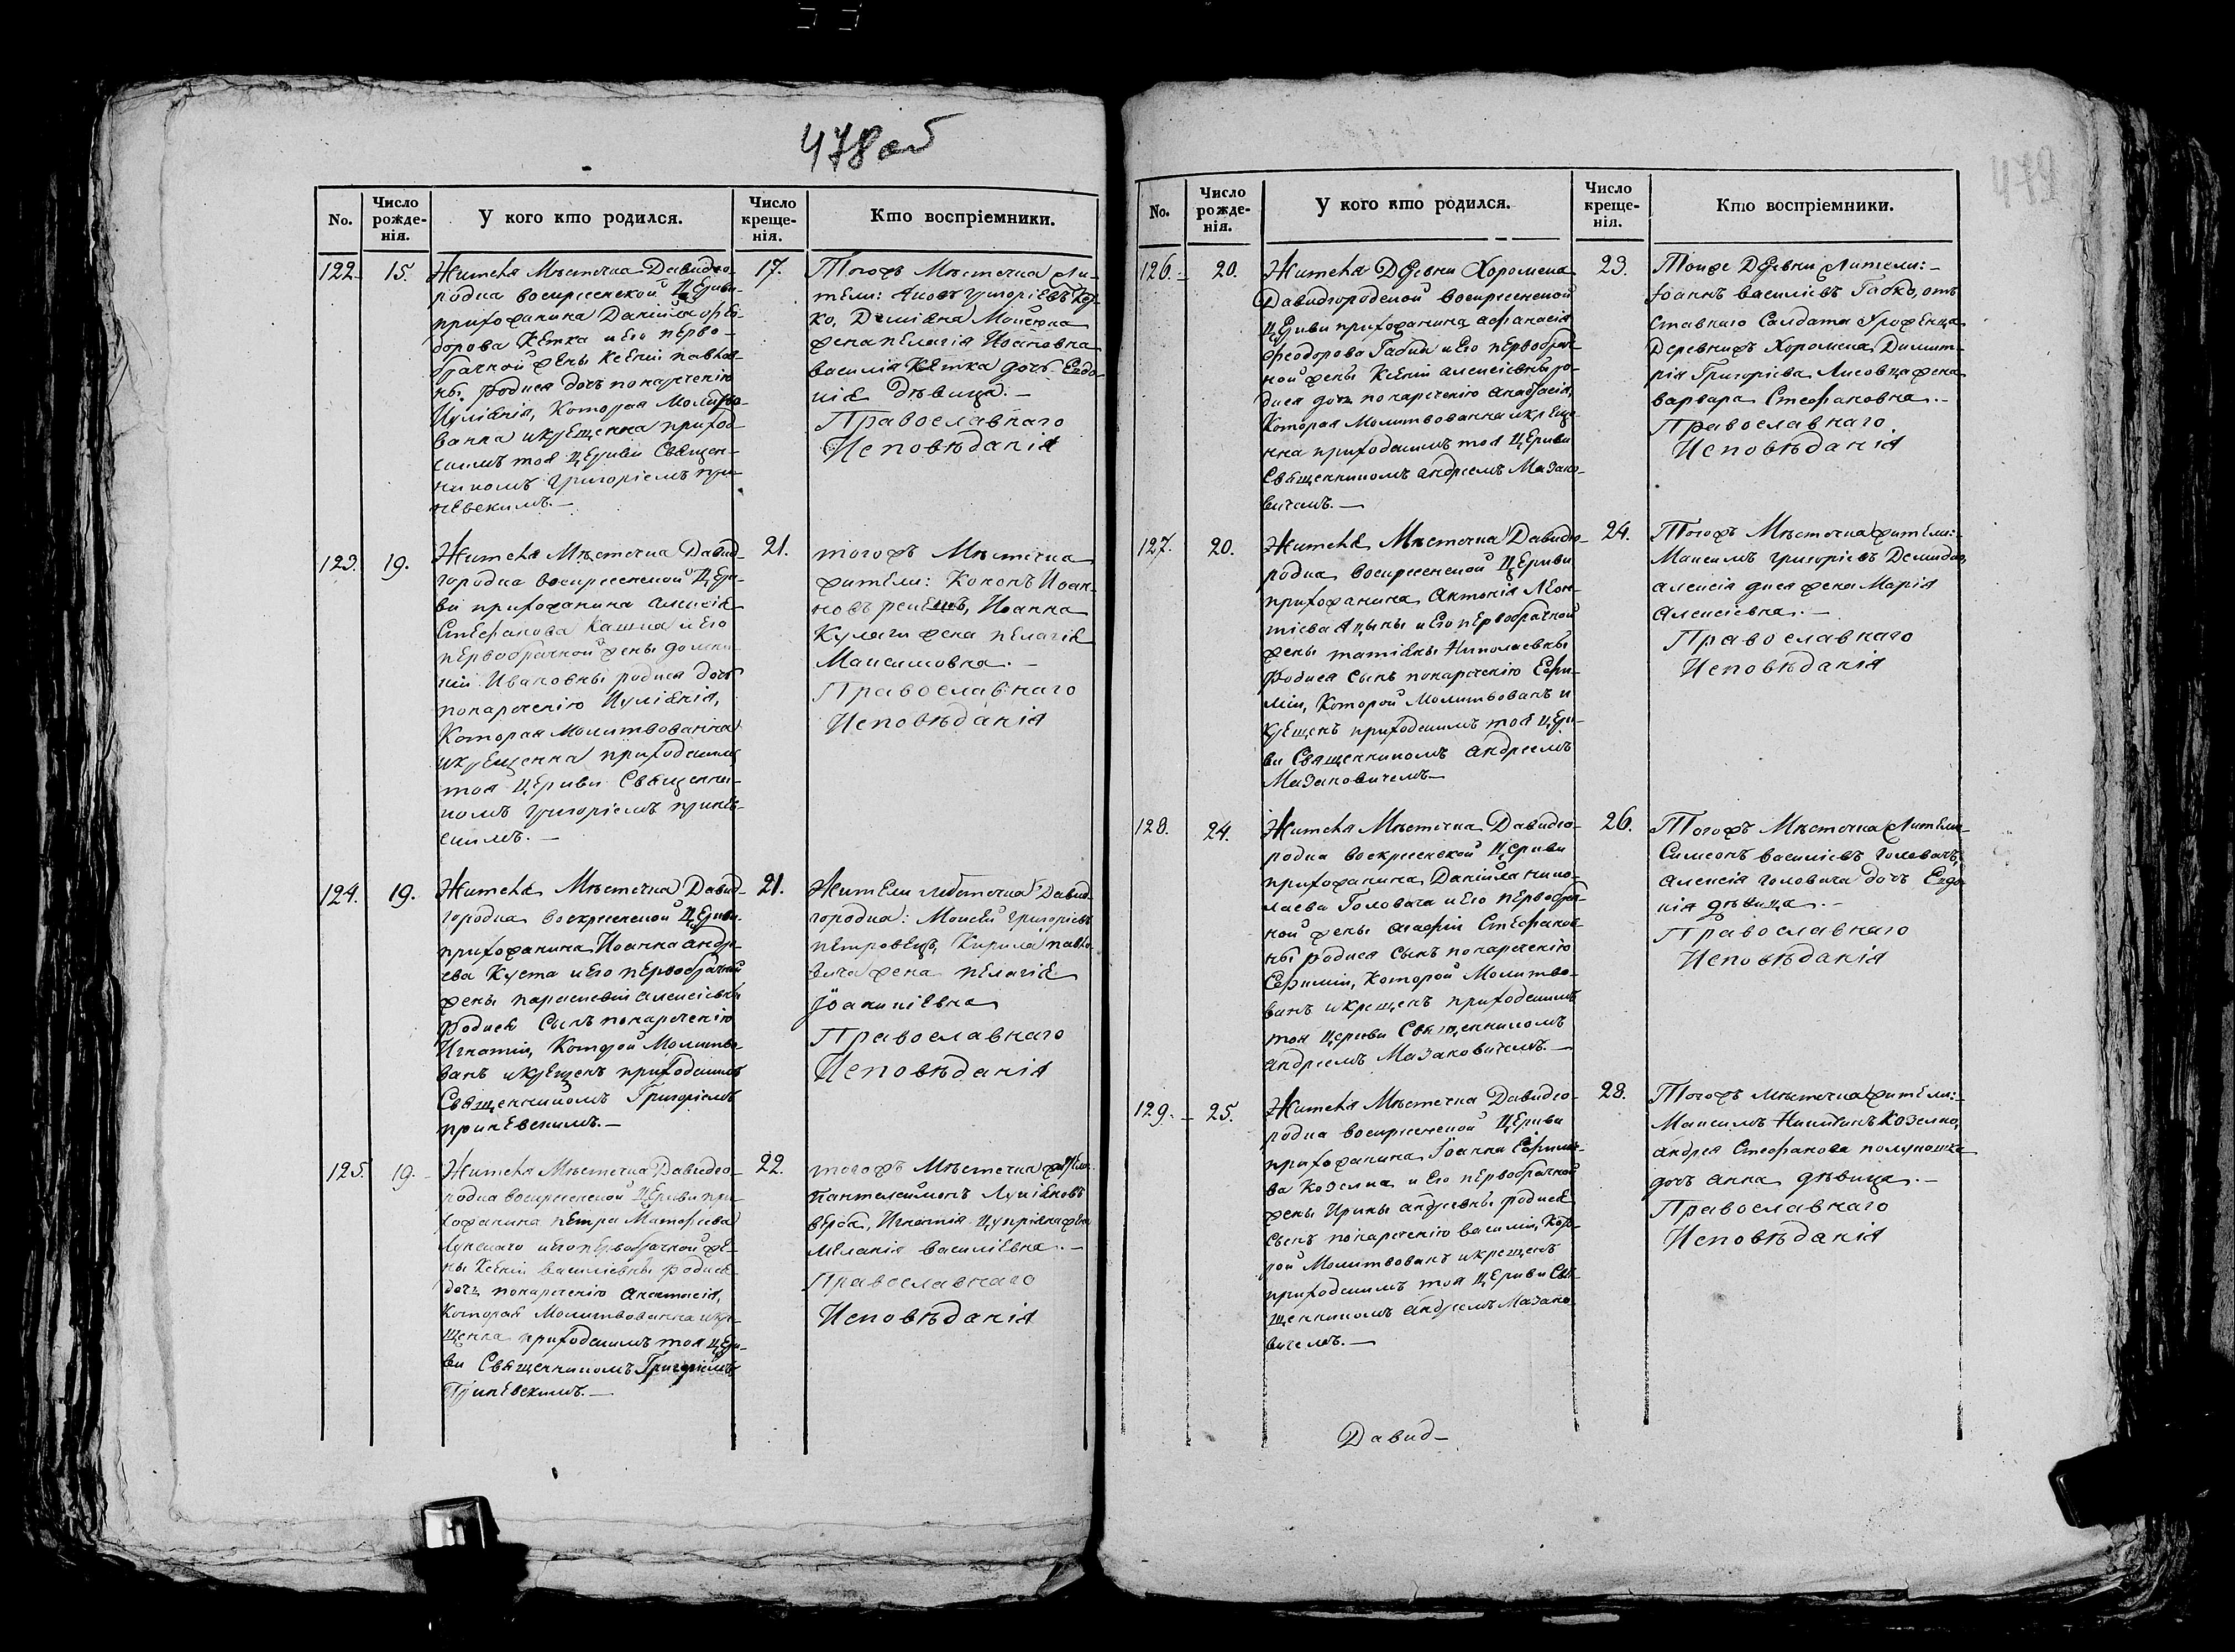 478об
No.
Число рожде-нія.
У кого кто родился.
Число креще-нія.
Кто воспріемники.
122.
15.
Жителя Мѣстечка Давидго-
родка воскресенской Церкви
прихожанина Даніила Фео-
дорова Кѣтка и Его перво-
брачной жены Ксеніи павлов-
ны родися дочь по наречению
Иулианія, Которая Молитво-
ванна и крещенна приход-
скимъ тоя Церкви Священ-
никомъ Григоріемъ
17.
Тогожъ Мѣстечка Жи-
тели: Яковъ Григоріевъ
ко, Деміяна
жена пелагія Иоановна
василія дочь Евдо-
кія дѣвица. –
Православнаго
Исповѣданія
123.
19.
Жителя Мѣстечка Давид-
городка воскресенской Церк-
ви прихожанина алексія
Стефанова Кашка и Его
первобрачной жены домни-
кіи Ивановны родися дочь
по наречению Иулиянія,
Которая Молитвованна
и крещенна приходским
тоя Церкви Священни-
комъ Григоріемъ
скимъ. –
21.
тогожъ Мѣстечка
жители: Кононъ Иоан-
новъ Иоанна
Кулаги жена пелагія
Максимовна. –
Православнаго
Исповѣданія
124.
19.
Жителя Мѣстечка Давид-
городка воскресенской Церкви
прихожанина Иоанна андре-
ева Куста и Его первобрачной
жены параскевіи алексіевны
родися Сынъ по наречению
Игнатій, Которой Молитво-
ванъ и крещенъ приходскимъ
Священникомъ Григоріемъ
21.
Жители Мѣстечка Давид-
городка: Моисей Григоріевъ
петровецъ, Кирила павло-
вича жена пелагія
Иоанниіевна
Православнаго
Исповѣданія
125.
19.
Жителя Мѣстечка Давидго-
родка воскресенской Церкви при-
хожанина петра Матфеева
и Его первобрачной же-
ны Ксеніи василіевны родися
дочь по наречению анастасія,
Которая Молитвованна и кре-
щенна приходскимъ тоя Церк-
ви Священникомъ Григоріемъ
22.
тогожъ Мѣстечка жители
Пантелеймонъ Лукіяновъ
Игнатія жена
Меланія василіевна. –
Православнаго
Исповѣданія
No.
Число рожде-нія.
У кого кто родился.
Число креще-нія.
Кто воспріемники.
126.
20.
Жителя Деревни Хоромска
Давидгородской воскресенской
Церкви прихожанина афанасія
Феодорова Габки и Его первобрач-
ной жены Ксеніи алексіевны ро-
дися дочь по наречению анастасія,
Которая Молитвованна и креще-
нна приходскимъ тоя Церкви
Священникомъ андреемъ Мазано-
вичемъ. –
23.
Тоиже Деревни Жители: –
Іоаннъ василіевъ Габко, от
ставнаго Салдата
Деревнижъ Хоромска Димит-
рія Григоріева Лисовца жена
варвара Стефановна. –
Православнаго
Исповѣданія
127.
20.
Жителя Мѣстечка Давидго-
родка воскресенской Церкви
прихожанина Антонія Леон-
тіева и Его первобрачной
жены татіяны Николаевны
родися Сынъ по наречению Ефи-
мій, Которой Молитвованъ и
крещенъ приходскимъ тоя Церк-
ви Священникомъ андреемъ
Мазановичемъ –
24.
Тогожъ Мѣстечка жители: –
Максимъ Григоріевъ
алексія жена Марія
Алексіевна. –
Православнаго
Исповѣданія
128.
24.
Жителя Мѣстечка Давидго-
родка воскресенской Церкви
прихожанина Даніила нико-
лаева Головача и Его первобрач-
ной жены агафіи Стефанов-
ны родися сынъ по наречению
Ефимій, Которой Молитво-
ванъ и крещенъ приходскимъ
тоя Церкви Священникомъ
андреемъ Мазановичемъ. –
26.
Тогожъ Мѣстечка Жители
Симеонъ василіевъ головачъ,
алексія головача дочь Евдо-
кія дѣвица. –
Православнаго
Исповѣданія
129.
25.
Жителя Мѣстечка Давидго-
родка воскресенской Церкви
прихожанина Іоанна Ефимо-
ва Козелка и Его первобрачной
жены Ирины андреевны родися
сынъ по наречению василій, Кото-
рой Молитвованъ и крещенъ
приходскимъ тоя Церкви Свя-
щенникомъ андреемъ Мазано-
вичемъ. –
28.
Тогожъ Мѣстечка жители: –
Максимъ Никитинъ Козелко,
андрея Стефанова полукошка
дочь анна дѣвица. –
Православнаго
Исповѣданія
Давид-